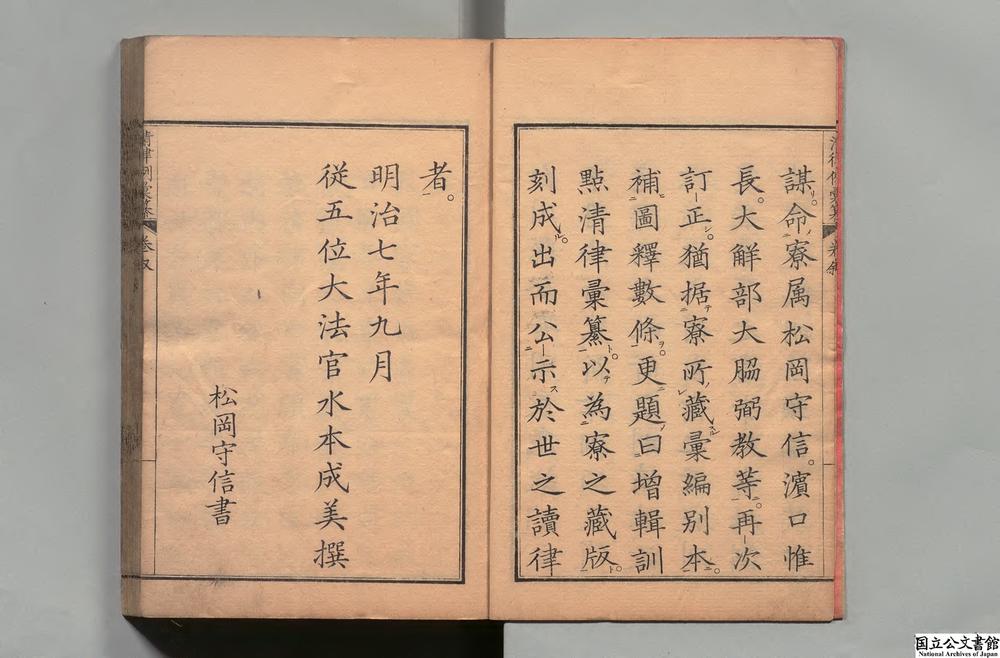 謀。命寮属松岡守信。濵口惟
長。大解部大脇弼教等。再次
訂正。猶据寮所藏彙編別本。
補圖釋數條。更題曰增輯訓
點清律彙纂。以為寮之藏版。
刻成。出而公示於世之讀律
者。
明治七年九月
従五位大法官水本成美撰
松岡守信書
国立公文書館
National Archives of Japan